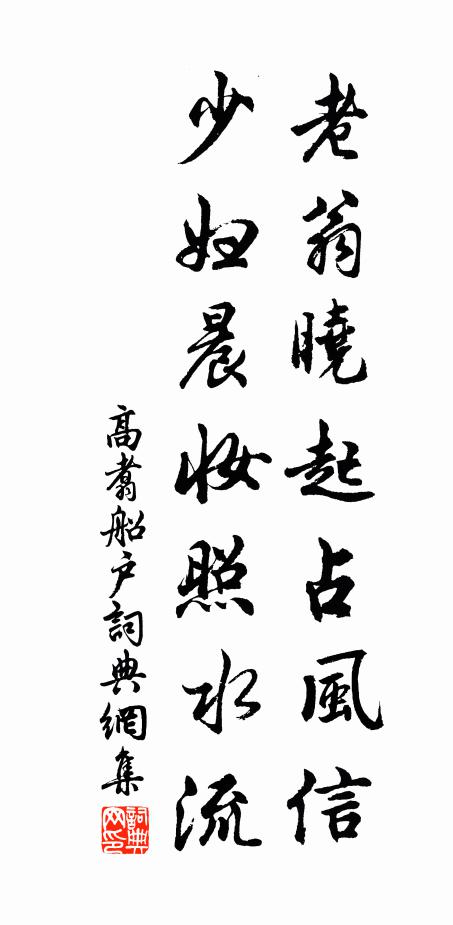 老翁曉起占風信
少妇晨妆照水流
高翥船户詞典網集
詞典网印